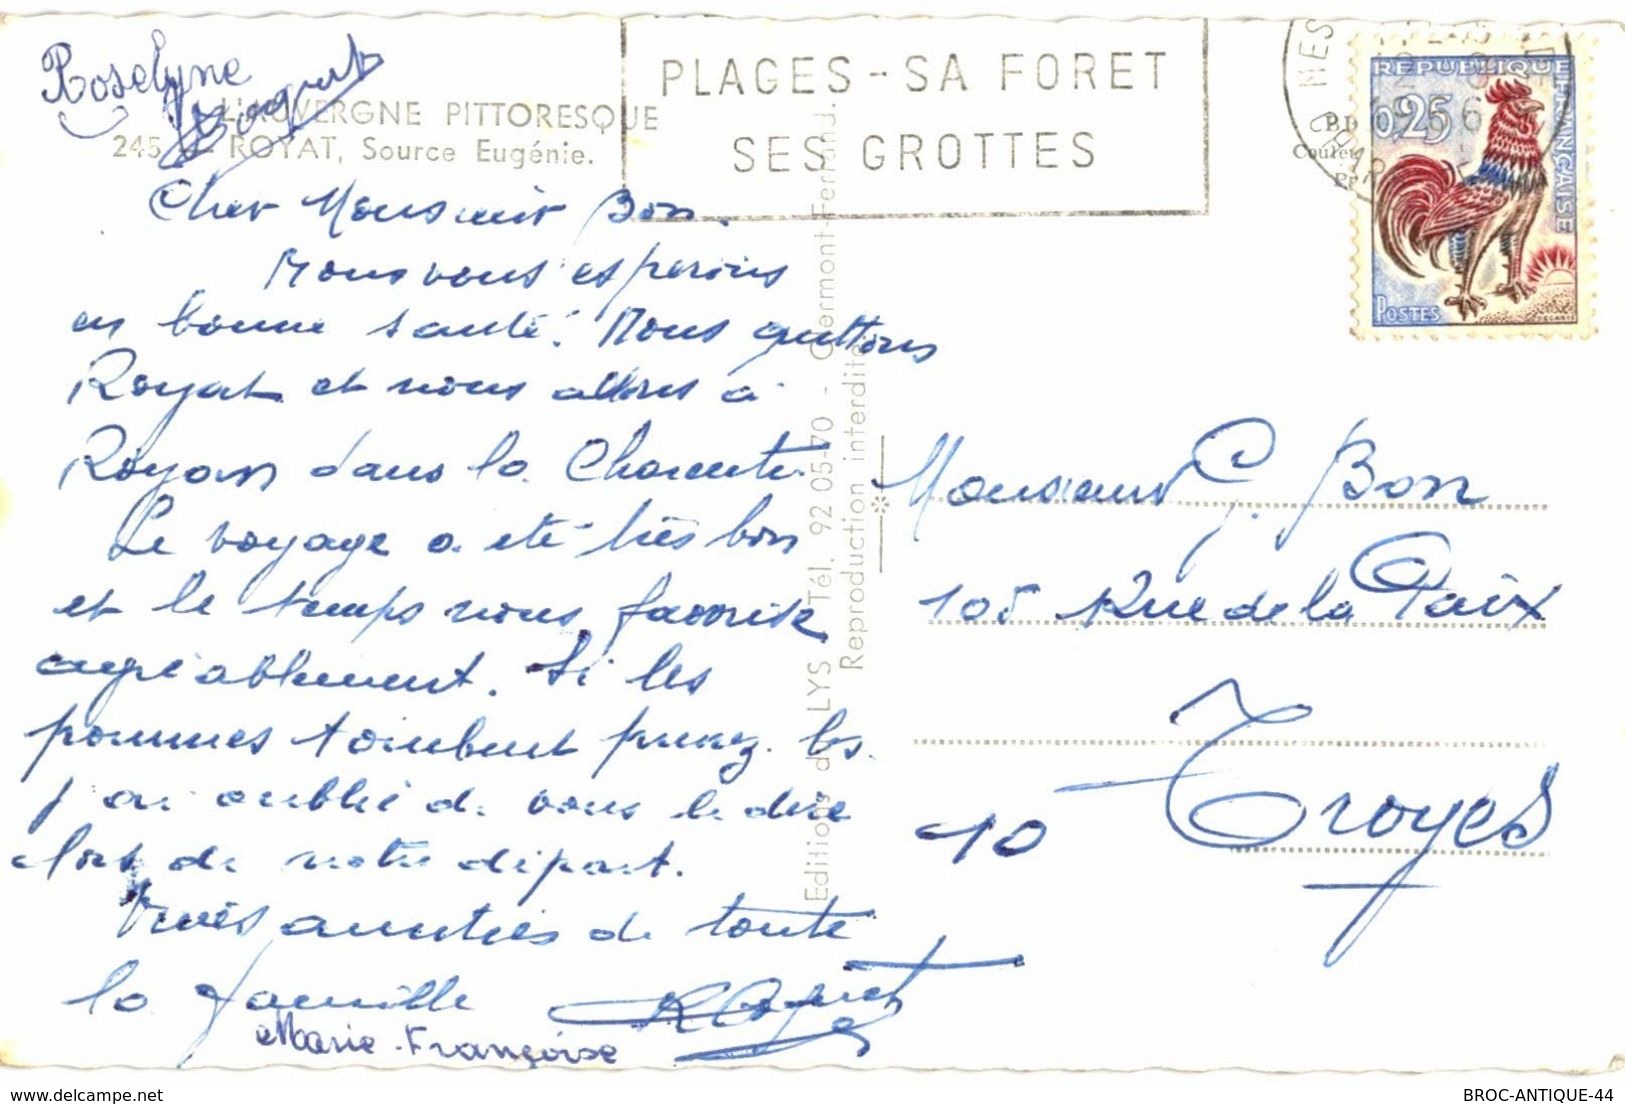 Roselyne
L'AUVERGNE PITTORESQUE
245 ROYAT, Source Eugénie.
PLAGES - SA FORET
SES GROTTES
MES
CHAR
REPUBLIQUE FRANÇAISE
0,25
POSTES
DECARIS
Cher Monsieur Bon.
Nous vous espérons
en bonne santé. Nous quittons
Royat et nous allons à
Royan dans la Charente
Le voyage a été très bon
et le temps nous favorise
agréablement. Si les
pommes tombent prenez les
j'ai oublié de vous le dire
lors de notre départ.
amitiés de toute
la famille
Marie-Françoise
Editions de LYS Tél. 92 05-70 - Clermont-Ferrand.
Reproduction interdite
Monsieur G. Bon
105 Rue de la Paix
10 Troyes
BROC-ANTIQUE-44